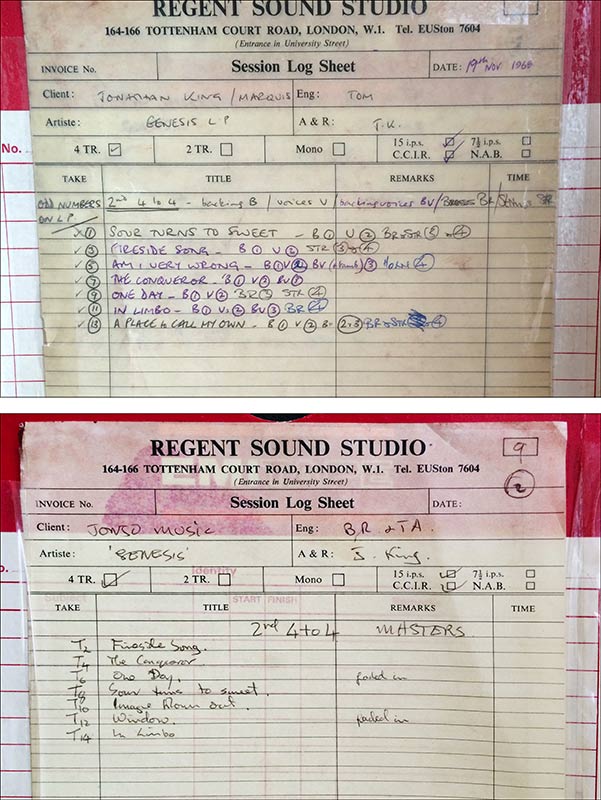 REGENT SOUND STUDIO
164-166 TOTTENHAM COURT ROAD, LONDON, W.1. Tel. EUSton 7604
(Entrance in University Street)
INVOICE No. Session Log Sheet DATE: 19th Nov 1968
Client: JONATHAN KING / MARQUIS Eng: TOM
Artiste: GENESIS LP A & R: J.K.
No. 4 TR. 2 TR. Mono 15 i.p.s. 7½ i.p.s.
C.C.I.R. N.A.B.
TAKE TITLE REMARKS TIME
ODD NUMBERS 2nd 4 to 4 - backing B / voices V / backing voices BV / BR /
ON LP
1 SOUR TURNS TO SWEET - B 1 V 2 BR & STR 3 4
3 FIRESIDE SONG - B 1 V 2 STR 3 4
5 AM I VERY WRONG - B 1 V 2 BV 3 HORN 4
7 THE CONQUEROR - B 1 V 2 BV
9 ONE DAY - B 1 V 2 BR 3 STR 4
11 IN LIMBO - B 1 V 2 BV 3 BR 4
13 A PLACE TO CALL MY OWN - B 1 V 2 2+3 BR & STR 4
REGENT SOUND STUDIO 9
164-166 TOTTENHAM COURT ROAD, LONDON, W.1. Tel. EUSton 7604
(Entrance in University Street) 2
INVOICE No. Session Log Sheet DATE:
Client: JONJO MUSIC Eng: B.R. & T.A.
Artiste: 'GENESIS' A & R: J. King.
Identity
4 TR. 2 TR. Mono 15 i.p.s. 7½ i.p.s.
C.C.I.R. N.A.B.
Subject START FINISH
TAKE TITLE REMARKS TIME
2nd 4 to 4 MASTERS
T2 Fireside Song.
T4 The Conqueror.
T6 One Day. faded in
T8 Sour turns to sweet.
T10 Image Blown out.
T12 Window. faded in
T14 In Limbo